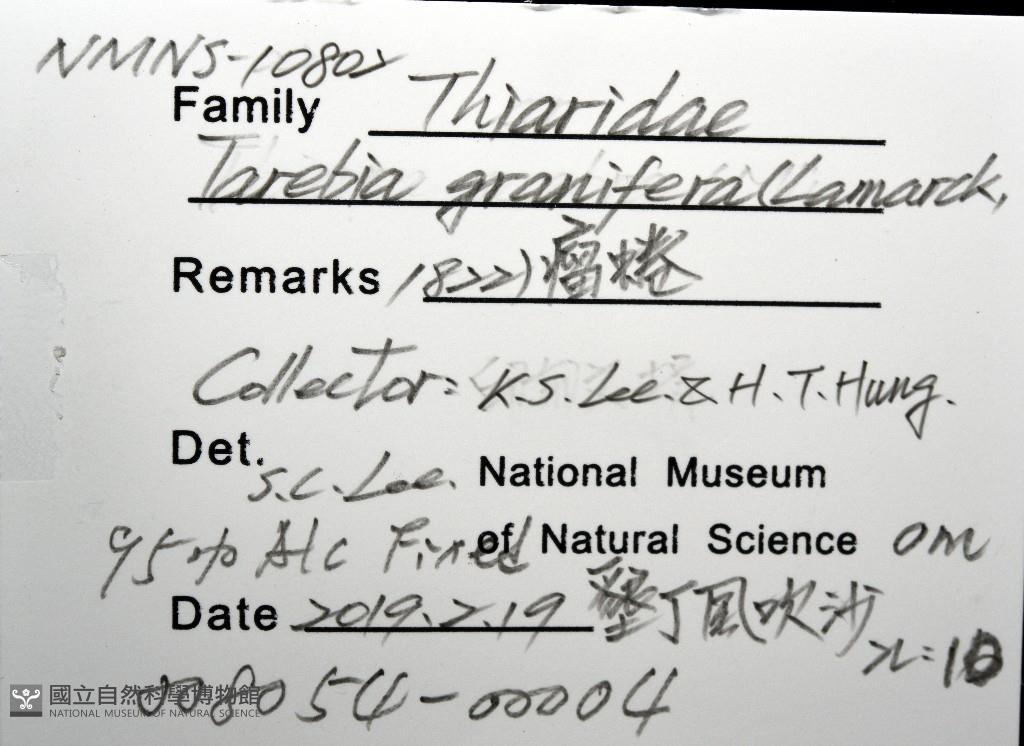 NMNS-10802
Family Thiaridae
Tarebia granifera (Lamarck,
Remarks 1822) 瘤蜷
Collector: K.S. Lee. & H.T. Hung.
Det. S.C. Lee. National Museum
95% Alc Fixed of Natural Science 0m
Date 2019.2.19 墾丁風吹沙
008054-00004
國立自然科學博物館
NATIONAL MUSEUM OF NATURAL SCIENCE